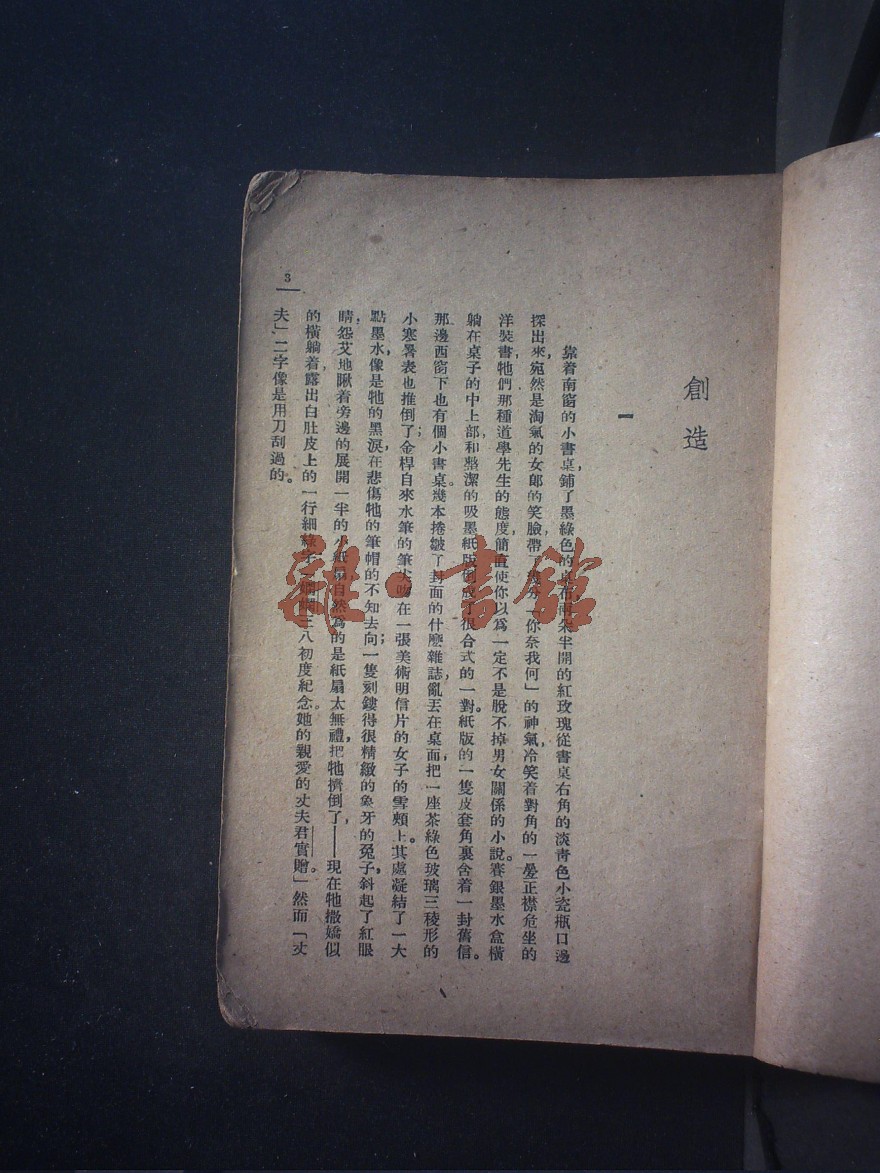 創造
一
靠着南窗的小書桌,鋪了墨綠色的桌布,兩朵半開的紅玫瑰從書桌右角的淡靑色小瓷瓶口邊
探出來,宛然是淘氣的女郎的笑臉,帶了幾分「你奈我何」的神氣,冷笑着對角的一疊正襟危坐的
洋裝書,牠們那種道學先生的態度,簡直使你以爲一定不是脫不掉男女關係的小說。賽銀墨水盒橫
躺在桌子的中上部,和整潔的吸墨紙版倒成了很合式的一對。紙版的一隻皮套角裏含着一封舊信。
那邊西窗下也有個小書桌。幾本捲皺了封面的什麽雜誌,亂丟在桌面,把一座茶綠色玻璃三稜形的
小寒暑表也推倒了;金桿自來水筆的筆尖吻在一張美術明信片的女子的雪頰上。其處凝結了一大
點墨水,像是牠的黑淚,在悲傷牠的筆帽的不知去向;一隻刻鏤得很精緻的象牙的兔子,斜起了紅眼
睛,怨艾地瞅着旁邊的展開一半的小紙扇,自然爲的是紙扇太無禮,把牠擠倒了,——現在牠撒嬌似
的橫躺着,露出白肚皮上的一行細綠字:「嫻嫻三八初度紀念。她的親愛的丈夫君實贈。」然而「丈
夫」二字像是用刀刮過的。
3
雜·書館